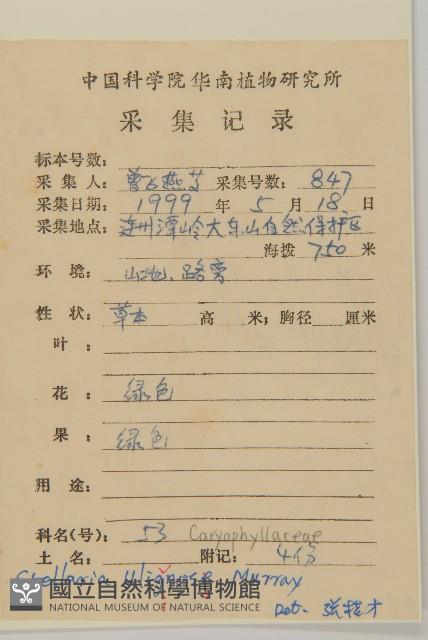 中国科学院华南植物研究所
采集记录
标本号数:
采集人: 曾飞燕等 采集号数: 847
采集日期: 1999 年 5 月 18 日
采集地点: 连州潭岭大东山自然保护区
海拨 750 米
环境: 山地、路旁
性状: 草本 高 米; 胸径 厘米
叶:
花: 绿色
果: 绿色
用途:
科名(号): 53 Caryophyllaceae
土名: 附记: 4份
Stellaria uliginosa Murray
國立自然科學博物館
NATIONAL MUSEUM OF NATURAL SCIENCE
Det.